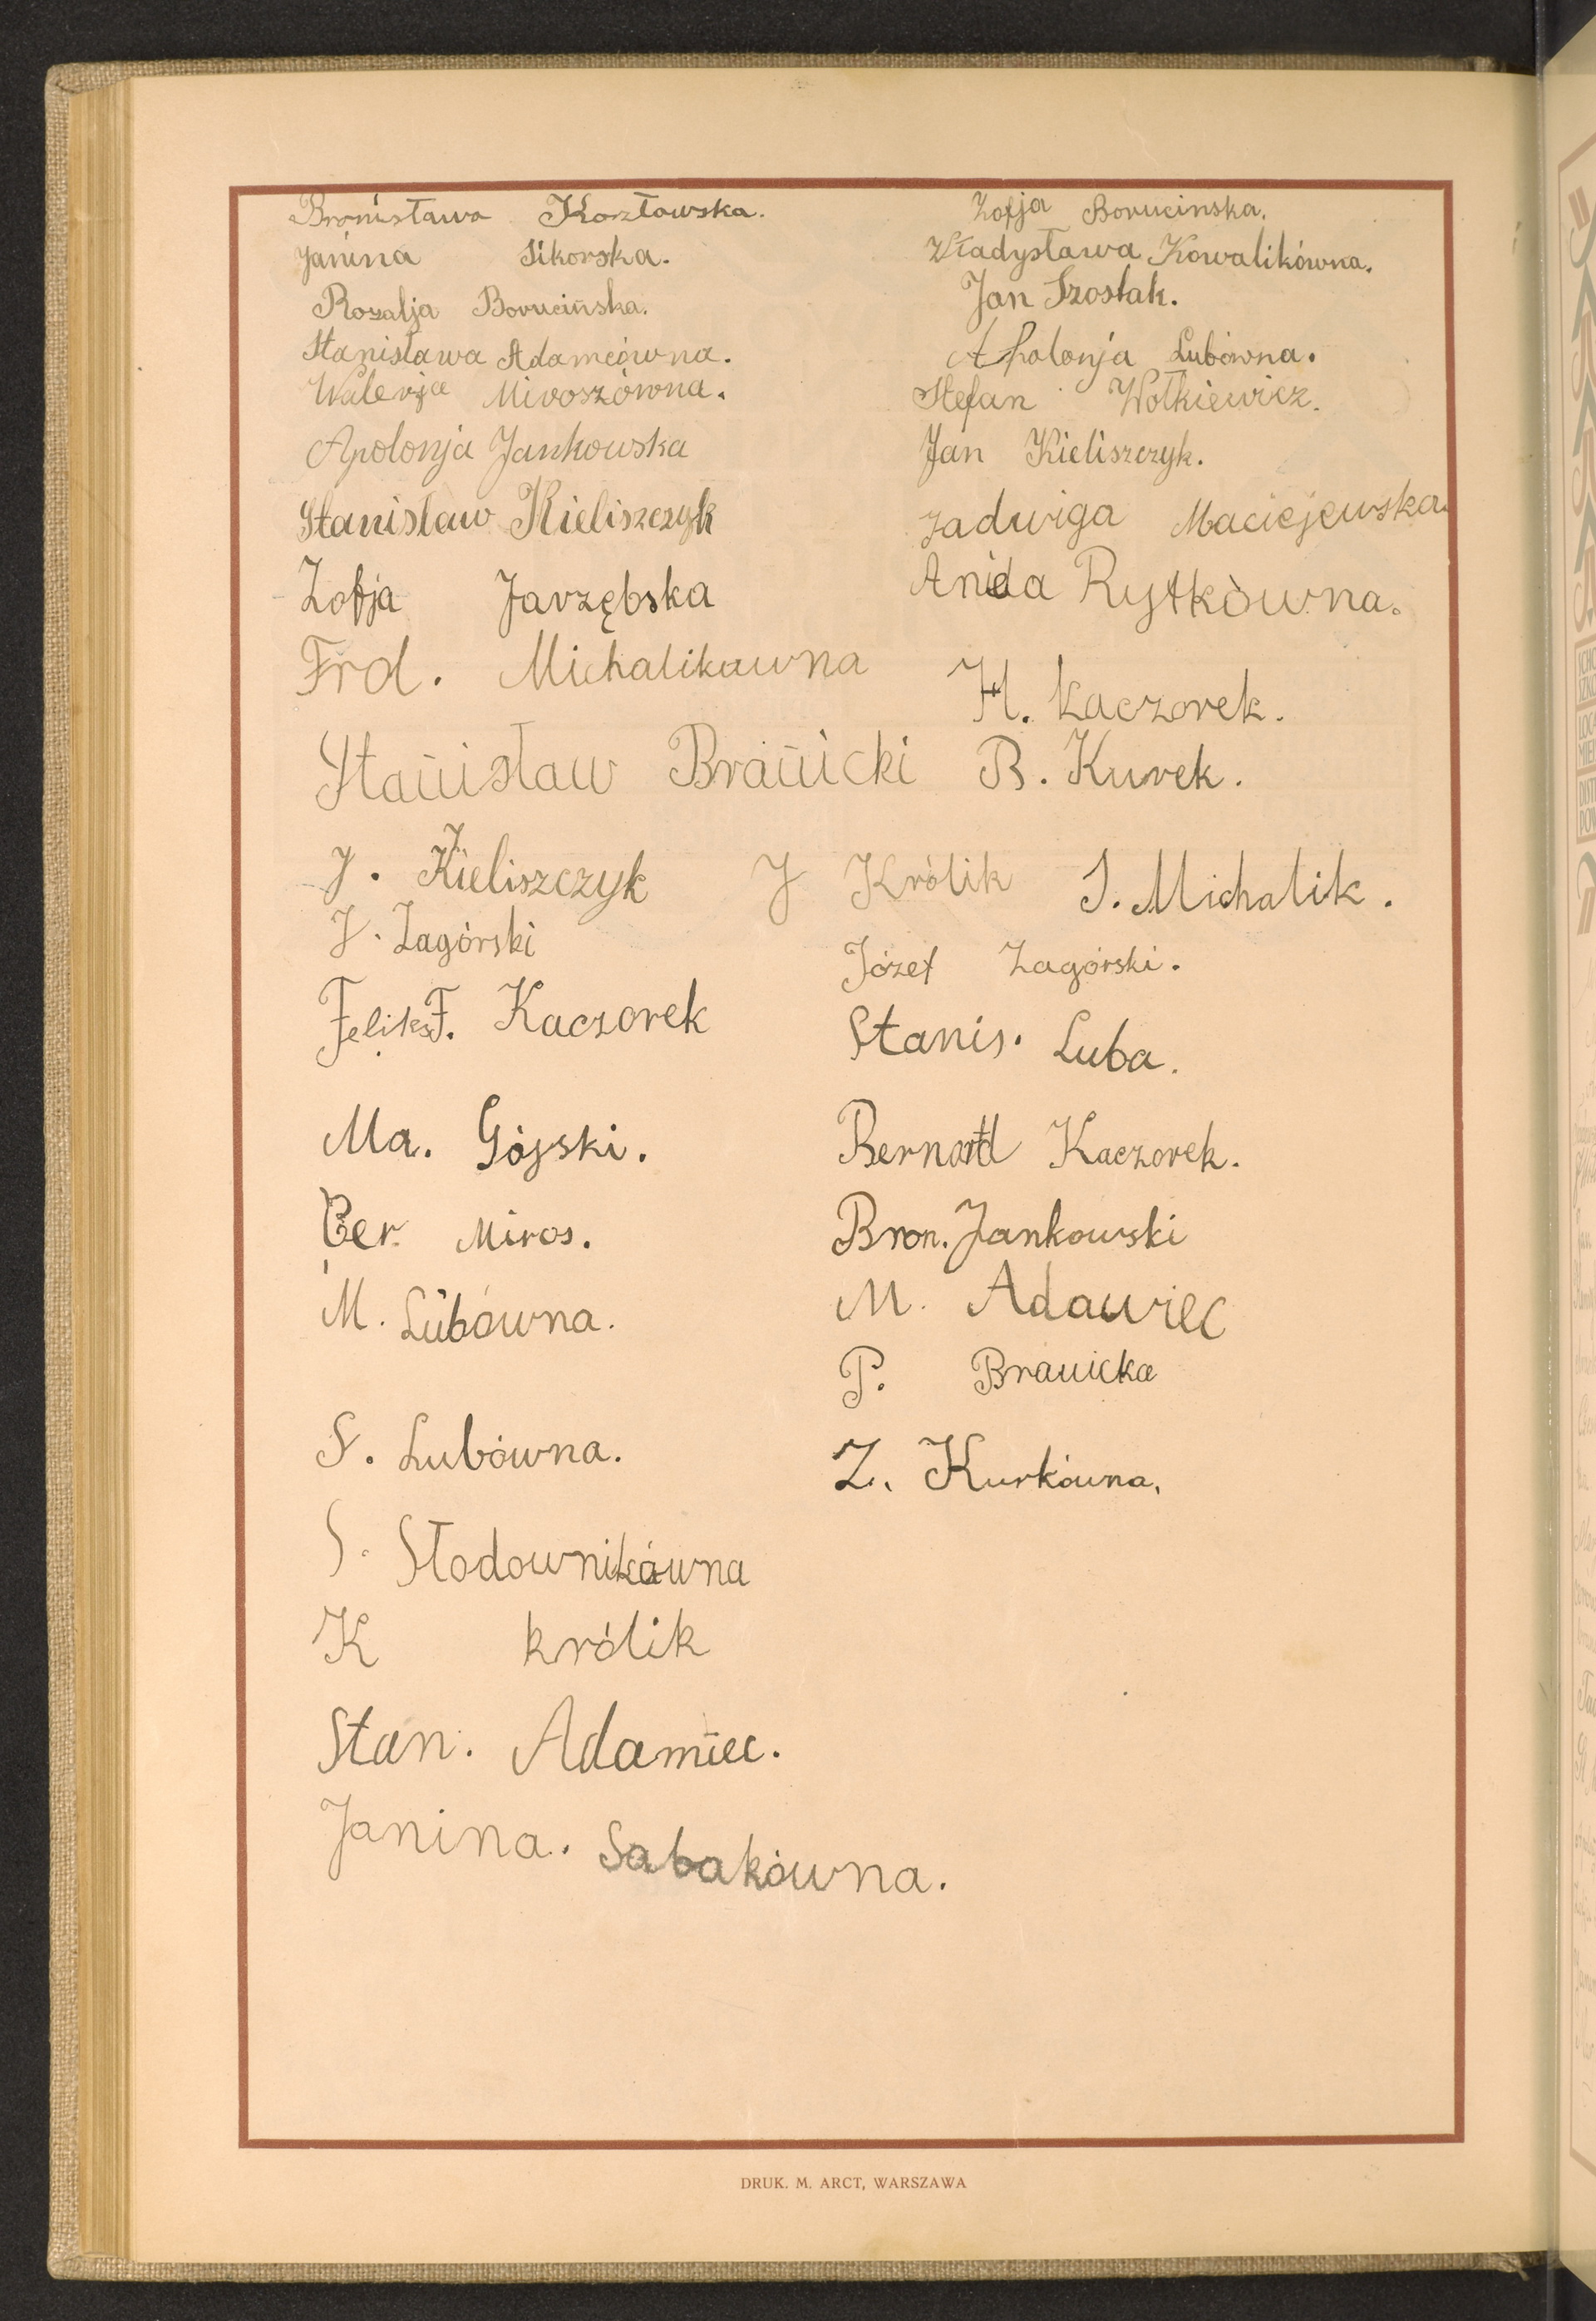 Bronisława Kozłowska.
Janina Sikorska.
Rozalja Borucińska.
Stanisława Adamcówna.
Walerja Miroszówna.
Apolonja Jankowska
Stanisław Kieliszczyk
Zofja Jarzębska
Frd. Michalikówna
Stanisław Branicki
J. Kieliszczyk
J. Zagórski
Feliks F. Kaczorek
Ma. Gójski.
Ber. Miros.
M. Lubówna.
S. Lubówna.
S. Słodownikówna
K królik
Stan. Adamiec.
Janina. Sabakówna.
Zofja Borucinska.
Władysława Kowalikówna.
Jan Szostak.
Apolonja Lubówna.
Stefan Wołkiewicz.
Jan Kieliszczyk.
Jadwiga Maciejewska.
Aniela Rytkówna.
H. Kaczorek.
B. Kurek.
J Królik
S. Michalik.
Józef Zagórski.
Stanis. Luba.
Bernard Kaczorek.
Bron. Jankowski
M. Adawiec
P. Branicka
Z. Kurkówna.
DRUK. M. ARCT, WARSZAWA